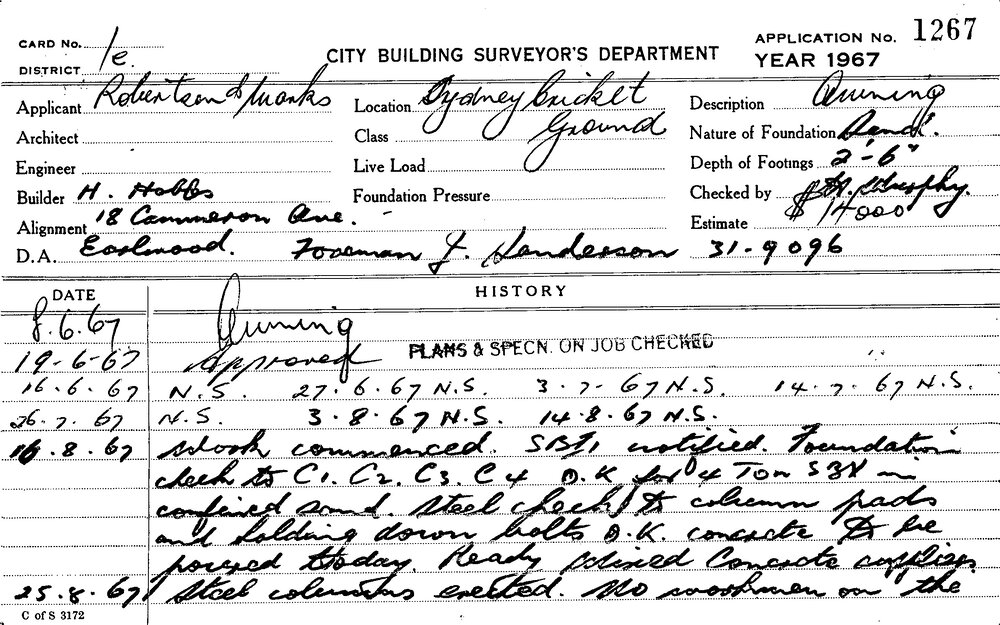 CARD No. 1e. CITY BUILDING SURVEYOR'S DEPARTMENT APPLICATION No. 1267
DISTRICT YEAR 1967
Applicant Robertson & Marks Location Sydney Cricket Description Awning
Architect Class Ground Nature of Foundation Sand.
Engineer Live Load Depth of Footings 2'-6"
Builder H. Hobbs Foundation Pressure Checked by Murphy.
Alignment 18 Cammeron Ave. Estimate $14000
D.A. Eastwood. Foreman J. Henderson 31-9096
DATE HISTORY
8.6.67 Awning
19-6-67 Approved PLANS & SPECN. ON JOB CHECKED
16.6.67 N.S. 27.6.67 N.S. 3.7.67 N.S. 14.7.67 N.S.
26.7.67 N.S. 3.8.67 N.S. 14.8.67 N.S.
16.8.67 Work commenced. notified. Foundation
check to C1. C2. C3. C4 O.K for 4 Ton in
confined sand. Steel check to column pads
and holding down bolts O.K. concrete to be
poured today. Ready Mixed Concrete
25.8.67 Steel columns erected. No workmen on the
C of S 3172